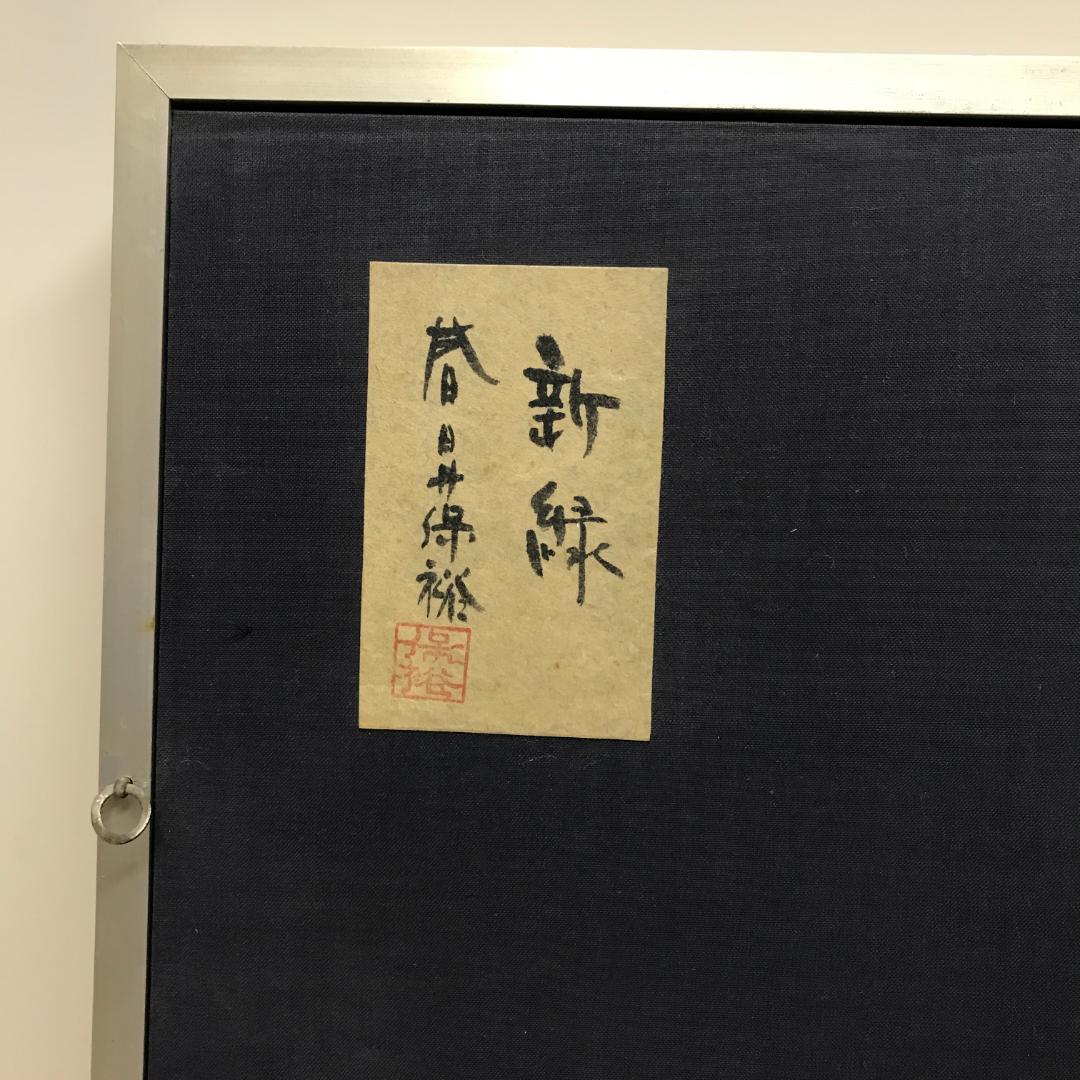 新緑
春日井保裕
保裕